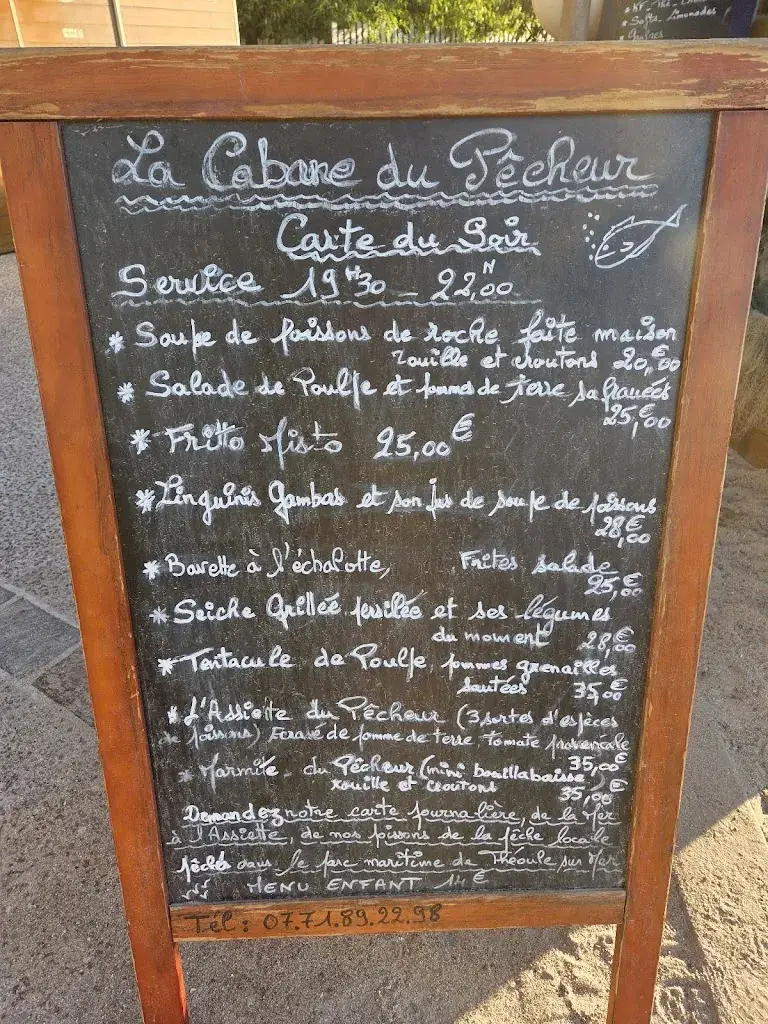 Softs. Limonades
La Cabane du Pêcheur
Carte du Soir
Service 19H30 - 22H,00
* Soupe de poissons de roche faite maison
rouille et croutons 20,€00
* Salade de Poulpe et pommes de terre safranées
25,€00
* Fritto Misto 25,00€
* Linguinis Gambas et son jus de soupe de poissons
28,€00
* Bavette à l'échalotte, Frites salade
25,€00
* Seiche Grillée persillée et ses légumes
du moment 28,€00
* Tentacule de Poulpe, pommes grenailles
sautées 35,€00
* L'Assiette du Pêcheur (3 sortes d'espèces
de poissons) Ecrasé de pomme de terre, tomate provençale
35,00€
* Marmite du Pêcheur (mini bouillabaisse)
rouille et croutons 35,00€
Demandez notre carte journalière, de la Mer
à l'Assiette, de nos poissons de la pêche locale
pêchés dans le parc maritime de Théoule sur Mer
MENU ENFANT 14€
Tél : 07.71.89.22.98